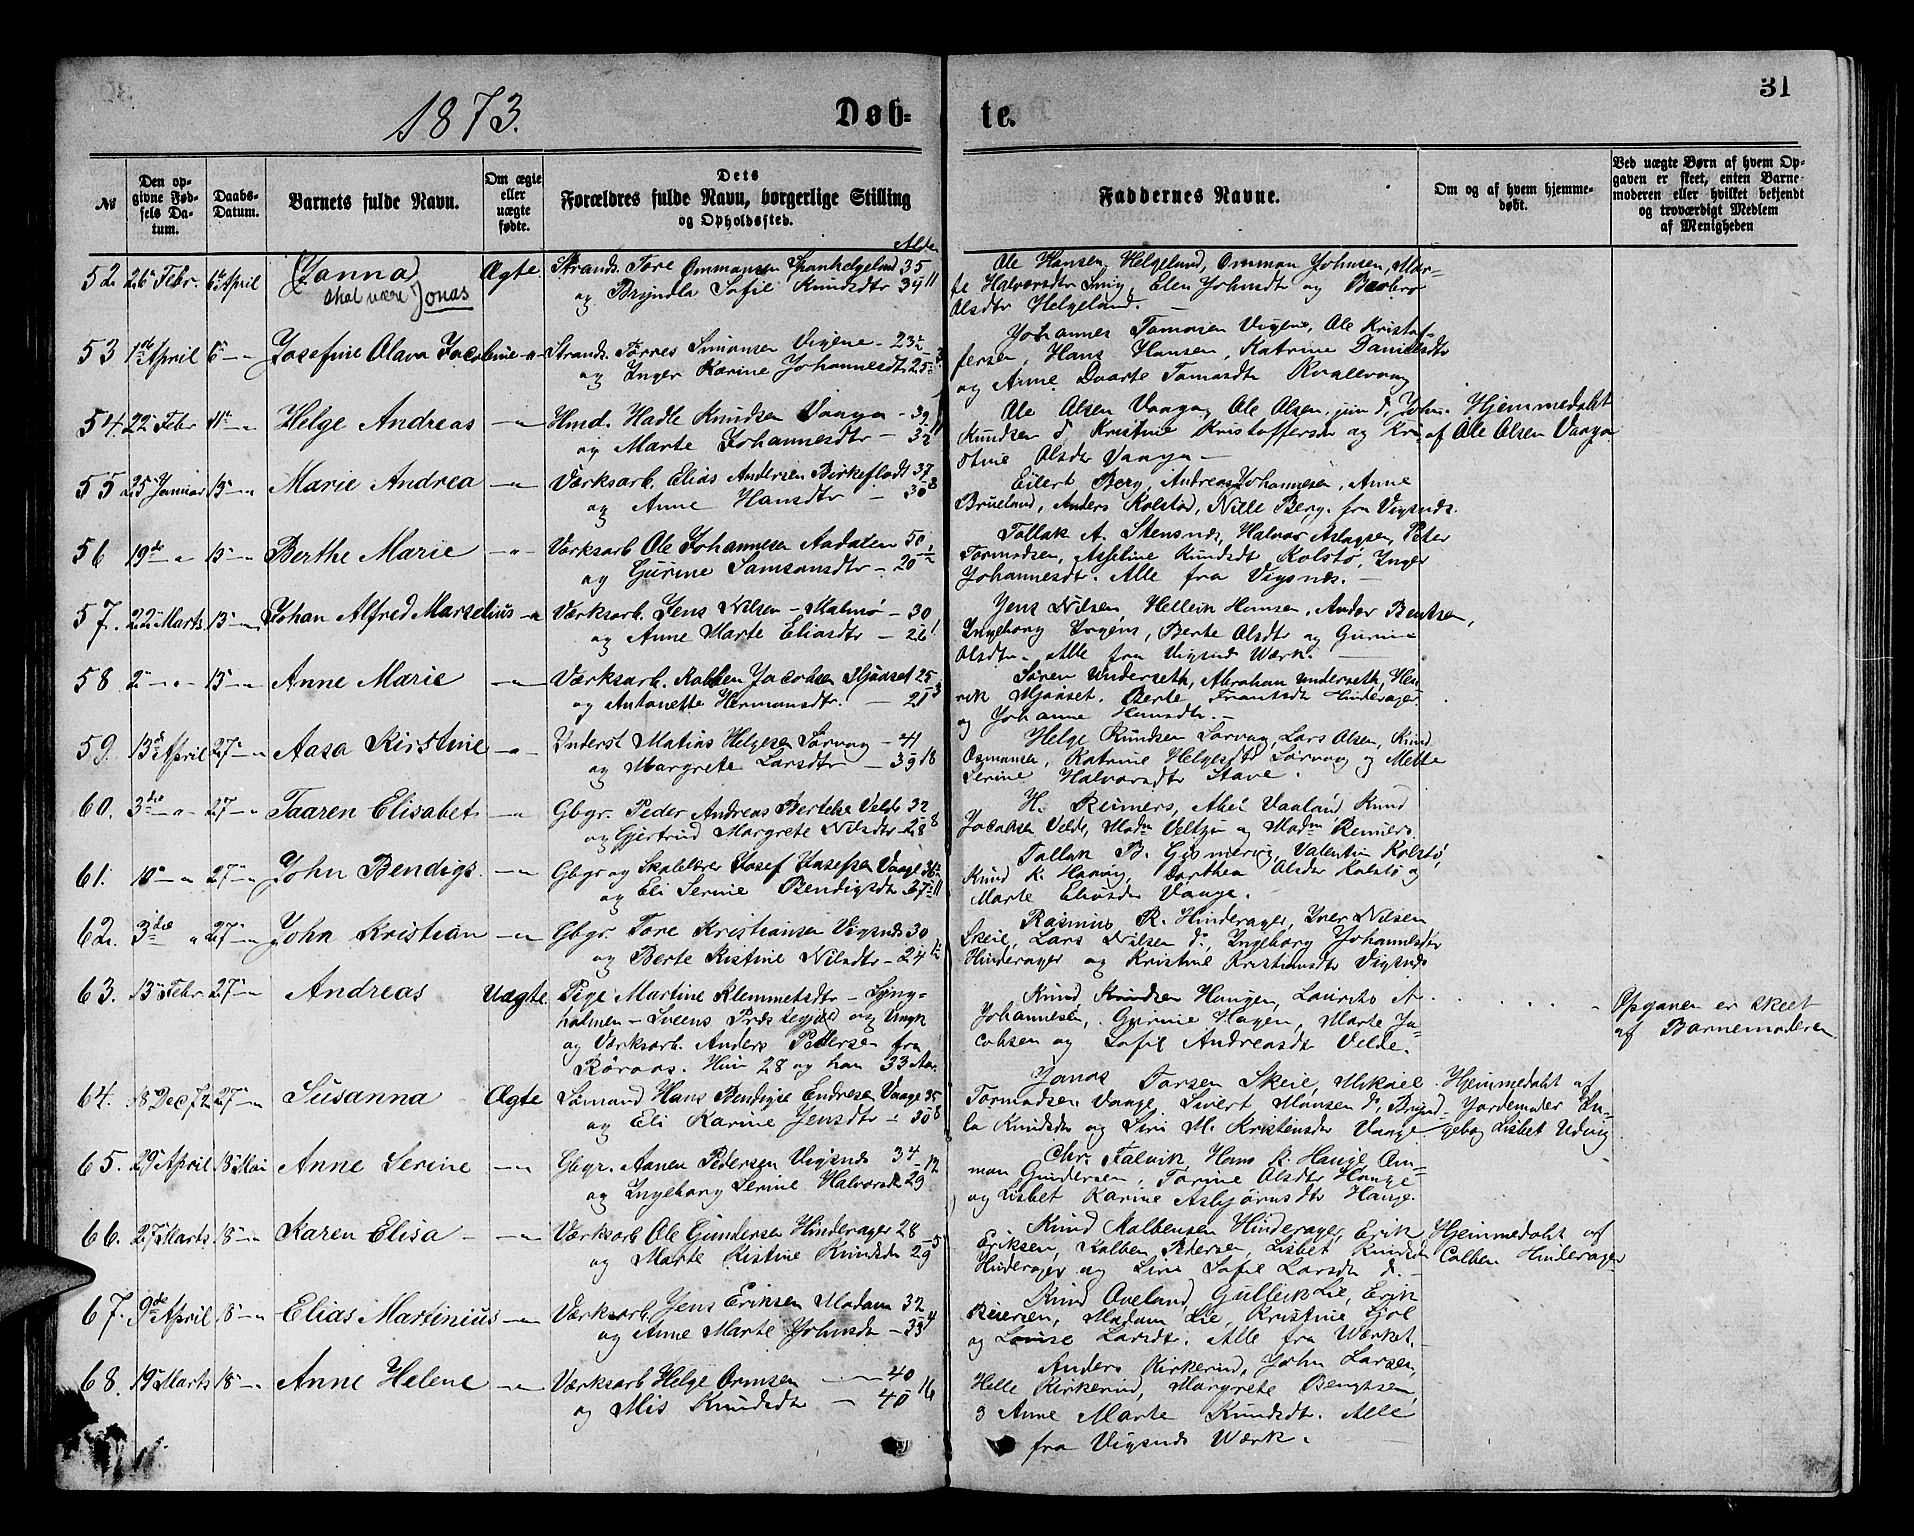 31
1873.
Døb= te.
№
Den op-
givne Fød-
sels Da-
tum.
Daabs-
Datum.
Barnets fulde Navn.
Om ægte
eller
uægte
fødte.
Dets
Forældres fulde Navn, borgerlige Stilling
og Opholdssted.
Alder
Faddernes Navne.
Om og af hvem hjemme-
døbt.
Ved uægte Børn af hvem Op-
gaven er skeet, enten Barne-
moderen eller hvilket bekjendt
og troværdigt Medlem
af Menigheden
52 26 Febr. 6 April (Janna) Ægte Strands. Tore Ommunsen 35
skal være Jonas og Bryndla Sofie Knudsdtr 34 11
Ole Hansen Helgeland, Ommon Johnsen, Mar-
te Halvorsdtr Elen Johnsdtr og Barbro
Olsdtr Helgeland.
53 1ste April 6 - " Josefine Olava Jacobine - " Strands. Torres Simonsen Vigene - 23
og Inger Karine Johannesdtr 25
Johannes Tomasen Vigene, Ole Kristof-
fersen, Hans Hansen, Katrine Danielsdtr
og Anne Dorte Tomasdtr Kvalevaag
54. 22 Febr 11 - " Helge Andreas - " Hmd. Hadle Knudsen Vaaga - 39
og Marte Johannesdtr - 32 11
Ole Olsen Vaaga, Ole Olsen jun do, John
Knudsen do Kristine Kristoffersdtr og Kri-
stine Olsdtr Vaaga -
Hjemmedøbt
af Ole Olsen Vaaga
55 25 Januar 15 - " Marie Andrea - " Værksarb. Elias Andersen Birkeflodt 37
og Anne Hansdtr - 30 8
Eilert Berg, Andreas Johannesen, Anne
Brueland, Anders Kolstad, Nille Berg. fra Vigsnæs.
56 19de - " 15 - " Berthe Marie - " Værksarb Ole Johannesen Aadalen 50
og Gurine Samsonsdtr - 20
Tollak A. Stensnæs, Halvor Aslagsen, Peter
Tormodsen, Knudsdt Kolstø, Inger
Johannesdtr. Alle fra Vigsnæs. -
57. 22 Marts 15 - " Johan Alfred Marselius - " Værksarb. Jens Nilsen - Malmø - 30
og Anne Marte Eliasdtr - 26 1
Jens Nilsen, Hellein Hemsen, Andor Bentsen,
Ingeborg Berte Olsdtr og Gurine
Olsdtr. Alle fra Vigsnæs Værk.
58 2 - " - " 15 - " Anne Marie - " Værksarb. Kolben Jacobsen Mjaaset 25
og Antonette Hermansdtr. - 21 3
Søren Underseth, Abraham Underseth, Hen-
rik Mjaaset. Berte Frantsdtr Hinderager
og Johanne Hansdtr. -
59. 13de April 27 - " Aasa Kirstine - " Inderst Matias Helgesen Sørvaag - 41
og Margrete Larsdtr - 39 18
Helge Knudsen Sørvaag, Lars Olsen, Knud
Osmonsen, Katrine Helgesdtr Sørvaag og Mette
Serine Halvorsdtr Stave.
60. 3die - " 27 - " Taaren Elisabet - " Gbgr. Peder Andreas Bertelse Velde 32
og Gjertrud Margrete Nilsdtr - 28 8
H. Reimers, Abel Vaaland, Knud
Jacobsen Velde, Madm Veltzin og Madm Reimers.
61. 10 - " 27 - " John Bendigs. - " Gbgr og Skolelærer Josef Josefsen Vaage 36
og Eli Serine Bendigsdtr 37 11
Tollak B. Gismervig, Valentin Kolstø,
Knud K. Haavig, Dorthea Olsdtr Kolstø og
Marte Eliasdtr Vaage.
62. 3die " 27 - " John Kristian - " Gbgr. Tore Kristiansen Vigsnæs 30
og Berte Kistine Nilsdtr - 24
Rasmus R. Hinderager, Iver Nilsen
Skeie, Lars Nilsen do., Ingeborg Johannesdtr
Hinderager og Kristine Kristiansdtr Vigsnæs
63. 13 Febr 27 - " Andreas Uægte Pige Martine Klemmetsdtr - Lyng-
holmen - Sveens Præstegjeld og Ungk
og Værksarb. Anders Pedersen fra
Röraas. Hun 28 og han 33 Aar.
Knud Knudsen Haugen, Laurits A
Johannesen, Gurine Hagen, Marte Ja-
cobsen og Sofie Andreasdtr Velde.
Opgaven er skeet
af Barnemoderen
64. 18 Dec 72 27 - " Susanna - Ægte Sømand Hans Bendigse Endresen Vaage 35
og Eli Karine Jensdtr - 30 8
Jonas Torsen Skeie, Mikael
Tormodsen Vaage, Sivert Monsen do, Brynd-
la Knudsdtr og Siri M. Kristensdtr Vaage
Hjemmedøbt af
Jordemoder In-
geborg Lisbet Udvig
65. 29 April 18 Mai Anne Serine - " Gbgr. Aanen Pedersen Vigsnæs 34
og Ingeborg Serine Halvorsdt 29 12
Chr. Falvik, Hans K. Hauge Om-
mon Gundersen, Torine Olsdtr Hauge
og Lisbet Karine Asbjørnsdtr Hauge.
66. 27 Marts 18 - " Karen Elisa - - " Værksarb Ole Gundersen Hinderager 28
og Marte Kistine Knudsdtr 29 5
Knud Kolbensen Hinderager, Erik
Eriksen, Kolben Pedersen, Lisbet Knudsen
Hinderager og Siri Sofie Larsdtr do. -
Hjemmedøbt af
Colben Hinderager
67. 9de April 18 - " Elias Martinius - " Værksarb Jens Eriksen Modam 32
og Anne Marte Johnsdtr - 39 4
Knud Aveland, Gullik Lie, Erik
Beiersen, Madam Lie, Kristine Fjol
og Louise Larsdtr. Alle fra Værket.
68. 19 Marts 18 - " Anne Helene - " Værksarb Helge Ormsen - 40
og Mis Knudsdtr - 40 16
Anders Kirkerud, John Larsen,
Helle Kirkerud, Margrete Bengtsen,
& Anne Marte Knudsdtr. Alle
fra Vigsnæs Værk.